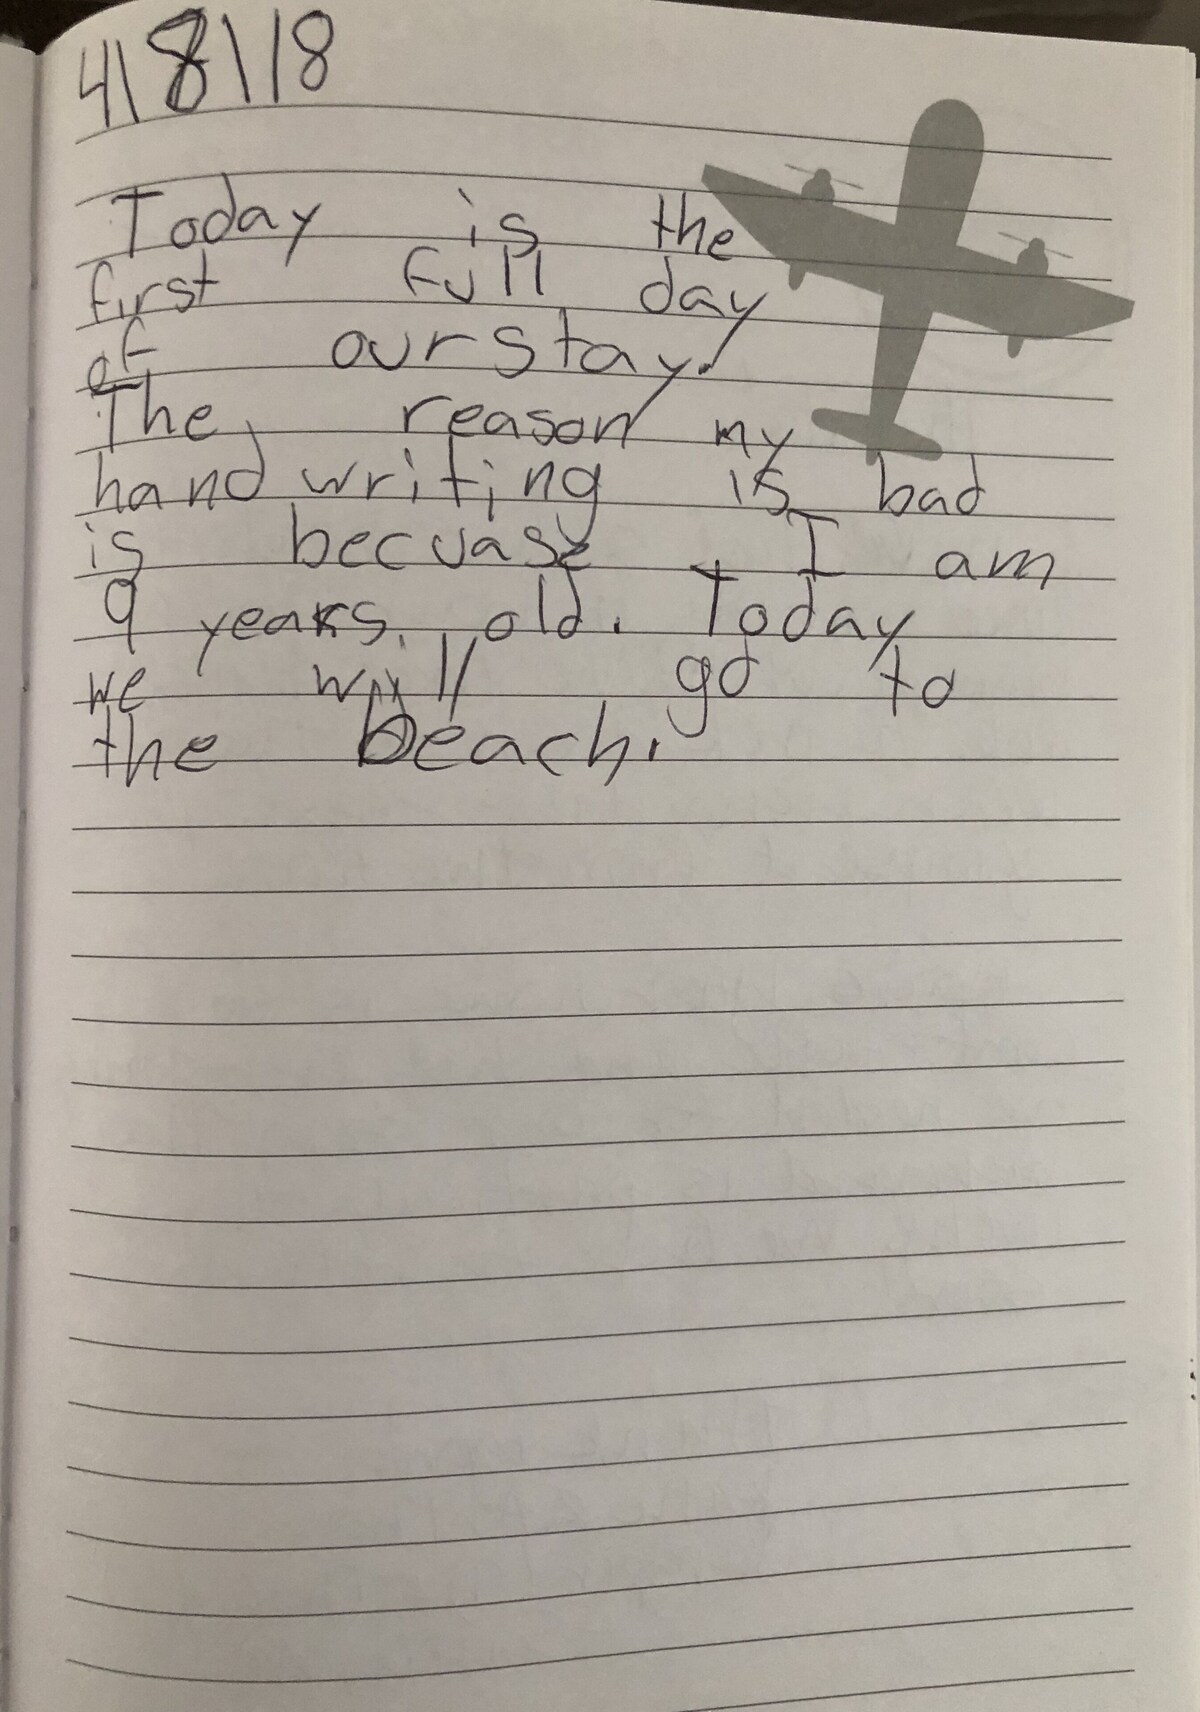 4\8\18
Today is the
first full day
of our stay.
The reason my
hand writing is bad
is becuase I am
9 years old. Today
we will go to
the beach.